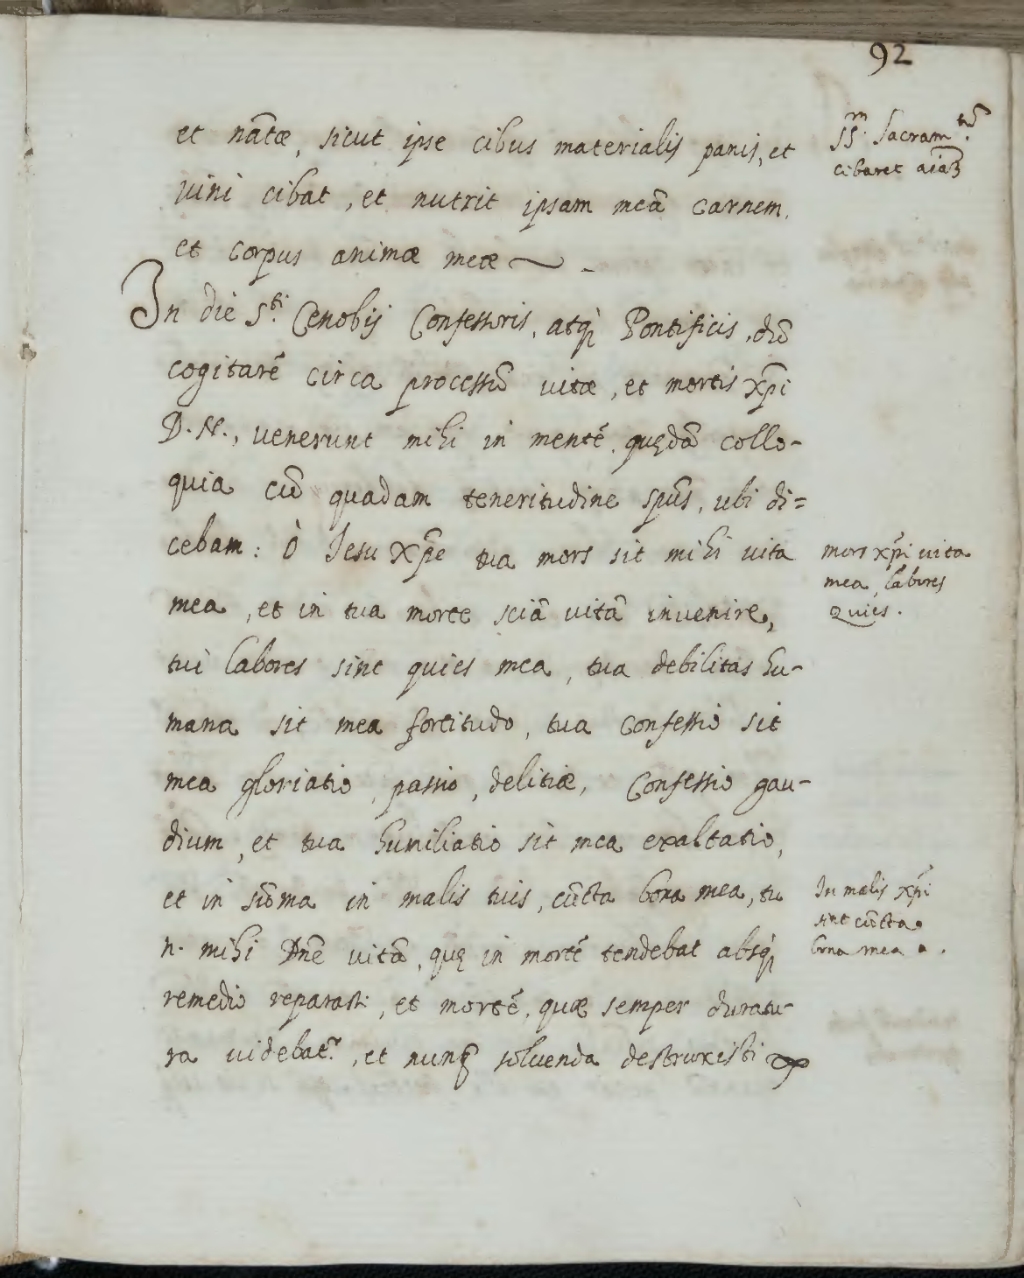 92
et nãtæ, sicut ipse cibus materialis panis, et
vini cibat, et nutrit ipsam meã carnem,
et corpus animæ meæ
SSm. Sacramtũ.
cibaret aiãȝ
In die Sti. Cenobij Confessoris, atq; Pontificis, dũ
cogitarẽ circa processũ vitæ, et mortis Xp̃i
D. N., venerunt mihi in mentẽ quędã collo-
quia cũ quadam teneritudine sp̃us, ubi di=
cebam: ò Jesu Xp̃e tua mors sit mihi vita
mea, et in tua morte sciã vitã invenire,
tui labores sint quies mea, tua debilitas hu-
mana sit mea fortitudo, tua confessio sit
mea gloriatio, passio, delitiæ, Confessio gau-
dium, et tua humiliatio sit mea exaltatio,
et in sũma in malis tuis, cũcta bona mea, tu
n. mihi Dñe vitã, quę in mortẽ tendebat absq;
remedio reparasti, et mortẽ, quæ semper duratu-
ra videbatr., et nunq̃ solvenda destruxisti
mors xp̃i vita
mea, labores
quies.
In malis xp̃i
sint cũcta
bona mea.